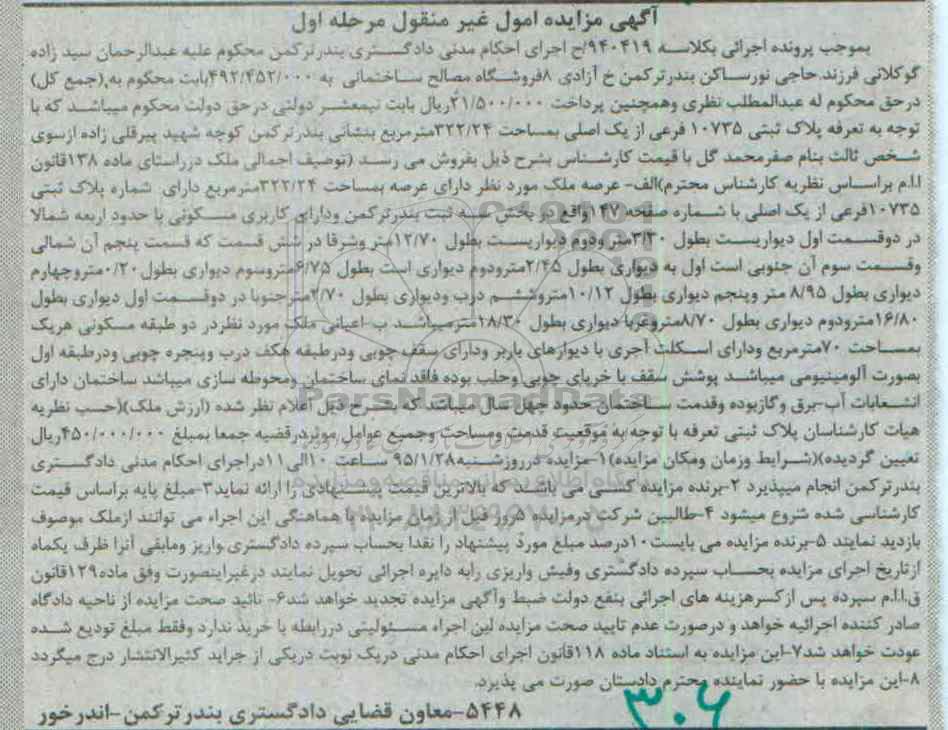 آگهی مزایده امول غیر منقول مرحله اول
بموجب پرونده اجرائی بکلاسه ۹۴۰۴۱۹/ح اجرای احکام مدنی دادگستری بندرترکمن محکوم علیه عبدالرحمان سید زاده
گوکلانی فرزند حاجی نورساکن بندرترکمن خ آزادی ۸فروشگاه مصالح ساختمانی به ۴۹۲/۴۵۲/۰۰۰بابت محکوم به(جمع کل)
درحق محکوم له عبدالمطلب نظری وهمچنین پرداخت ۲۱/۵۰۰/۰۰۰ریال بابت نیمعشر دولتی درحق دولت محکوم میباشد که با
توجه به تعرفه پلاک ثبتی ۱۰۷۳۵ فرعی از یک اصلی بمساحت ۳۲۲/۲۴مترمربع بنشانی بندرترکمن کوچه شهید پیرقلی زاده ازسوی
شخص ثالث بنام صفرمحمد گل با قیمت کارشناس بشرح ذیل بفروش می رسد (توصیف اجمالی ملک درراستای ماده ۱۳۸قانون
ا.ا.م براساس نظریه کارشناس محترم)الف- عرصه ملک مورد نظر دارای عرصه بمساحت ۳۲۲/۲۴مترمربع دارای شماره پلاک ثبتی
۱۰۷۳۵فرعی از یک اصلی با شماره صفحه ۱۴۷واقع در بخش سه ثبت بندرترکمن ودارای کاربری مسکونی با حدود اربعه شمالا
در دوقسمت اول دیواریست بطول ۳/۳۰متر ودوم دیواریست بطول ۱۲/۷۰متر وشرقا در شش قسمت که قسمت پنجم آن شمالی
وقسمت سوم آن جنوبی است اول به دیواری بطول ۲/۴۵مترودوم دیواری است بطول ۶/۷۵متروسوم دیواری بطول ۰/۲۰متروچهارم
دیواری بطول ۸/۹۵ متر وپنجم دیواری بطول ۱۰/۱۲متروششم درب ودیواری بطول ۲/۷۰مترجنوبا در دوقسمت اول دیواری بطول
۱۶/۸۰مترودوم دیواری بطول ۸/۷۰متروغربا دیواری بطول ۱۸/۳۰مترمیباشد ب-اعیانی ملک مورد نظردر دو طبقه مسکونی هریک
بمساحت ۷۰مترمربع ودارای اسکلت آجری با دیوارهای باربر ودارای سقف چوبی ودرطبقه هکف درب وپنجره چوبی ودرطبقه اول
بصورت آلومینیومی میباشد پوشش سقف با خرپای چوبی وحلب بوده فاقد نمای ساختمان ومحوطه سازی میباشد ساختمان دارای
انشعابات آب-برق وگازبوده وقدمت ساختمان حدود چهل سال میباشد که بشرح ذیل اعلام نظر شده (ارزش ملک)(حسب نظریه
هیات کارشناسان پلاک ثبتی تعرفه با توجه به موقعیت قدمت ومساحت وجمیع عوامل موثردرقضیه جمعا بمبلغ ۴۵۰/۰۰۰/۰۰۰ریال
تعیین گردیده)(شرایط وزمان ومکان مزایده)۱-مزایده درروزشنبه۹۵/۱/۲۸ ساعت ۱۰الی۱۱دراجرای احکام مدنی دادگستری
بندرترکمن انجام میپذیرد ۲-برنده مزایده کسی می باشد که بالاترین قیمت پیشنهادی را ارائه نماید۳-مبلغ پایه براساس قیمت
کارشناسی شده شروع میشود ۴-طالبین شرکت درمزایده ۵روز قبل از زمان مزایده با هماهنگی این اجراء می توانند ازملک موصوف
بازدید نمایند ۵-برنده مزایده می بایست ۱۰درصد مبلغ مورد پیشنهاد را نقدا بحساب سپرده دادگستری واریز ومابقی آنرا ظرف یکماه
ازتاریخ اجرای مزایده بحساب سپرده دادگستری وفیش واریزی رابه دایره اجرائی تحویل نمایند درغیراینصورت وفق ماده۱۲۹قانون
ق.ا.ا.م سپرده پس ازکسرهزینه های اجرائی بنفع دولت ضبط وآگهی مزایده تجدید خواهد شد۶- تائید صحت مزایده از ناحیه دادگاه
صادر کننده اجرائیه خواهد و درصورت عدم تایید صحت مزایده این اجراء مسئولیتی دررابطه با خرید ندارد وفقط مبلغ تودیع شده
عودت خواهد شد۷-این مزایده به استناد ماده ۱۱۸قانون اجرای احکام مدنی دریک نوبت دریکی از جراید کثیرالانتشار درج میگردد
۸-این مزایده با حضور نماینده محترم دادستان صورت می پذیرد.
۵۴۴۸-معاون قضایی دادگستری بندرترکمن-اندرخور
۳۰۶
ParsNamadData